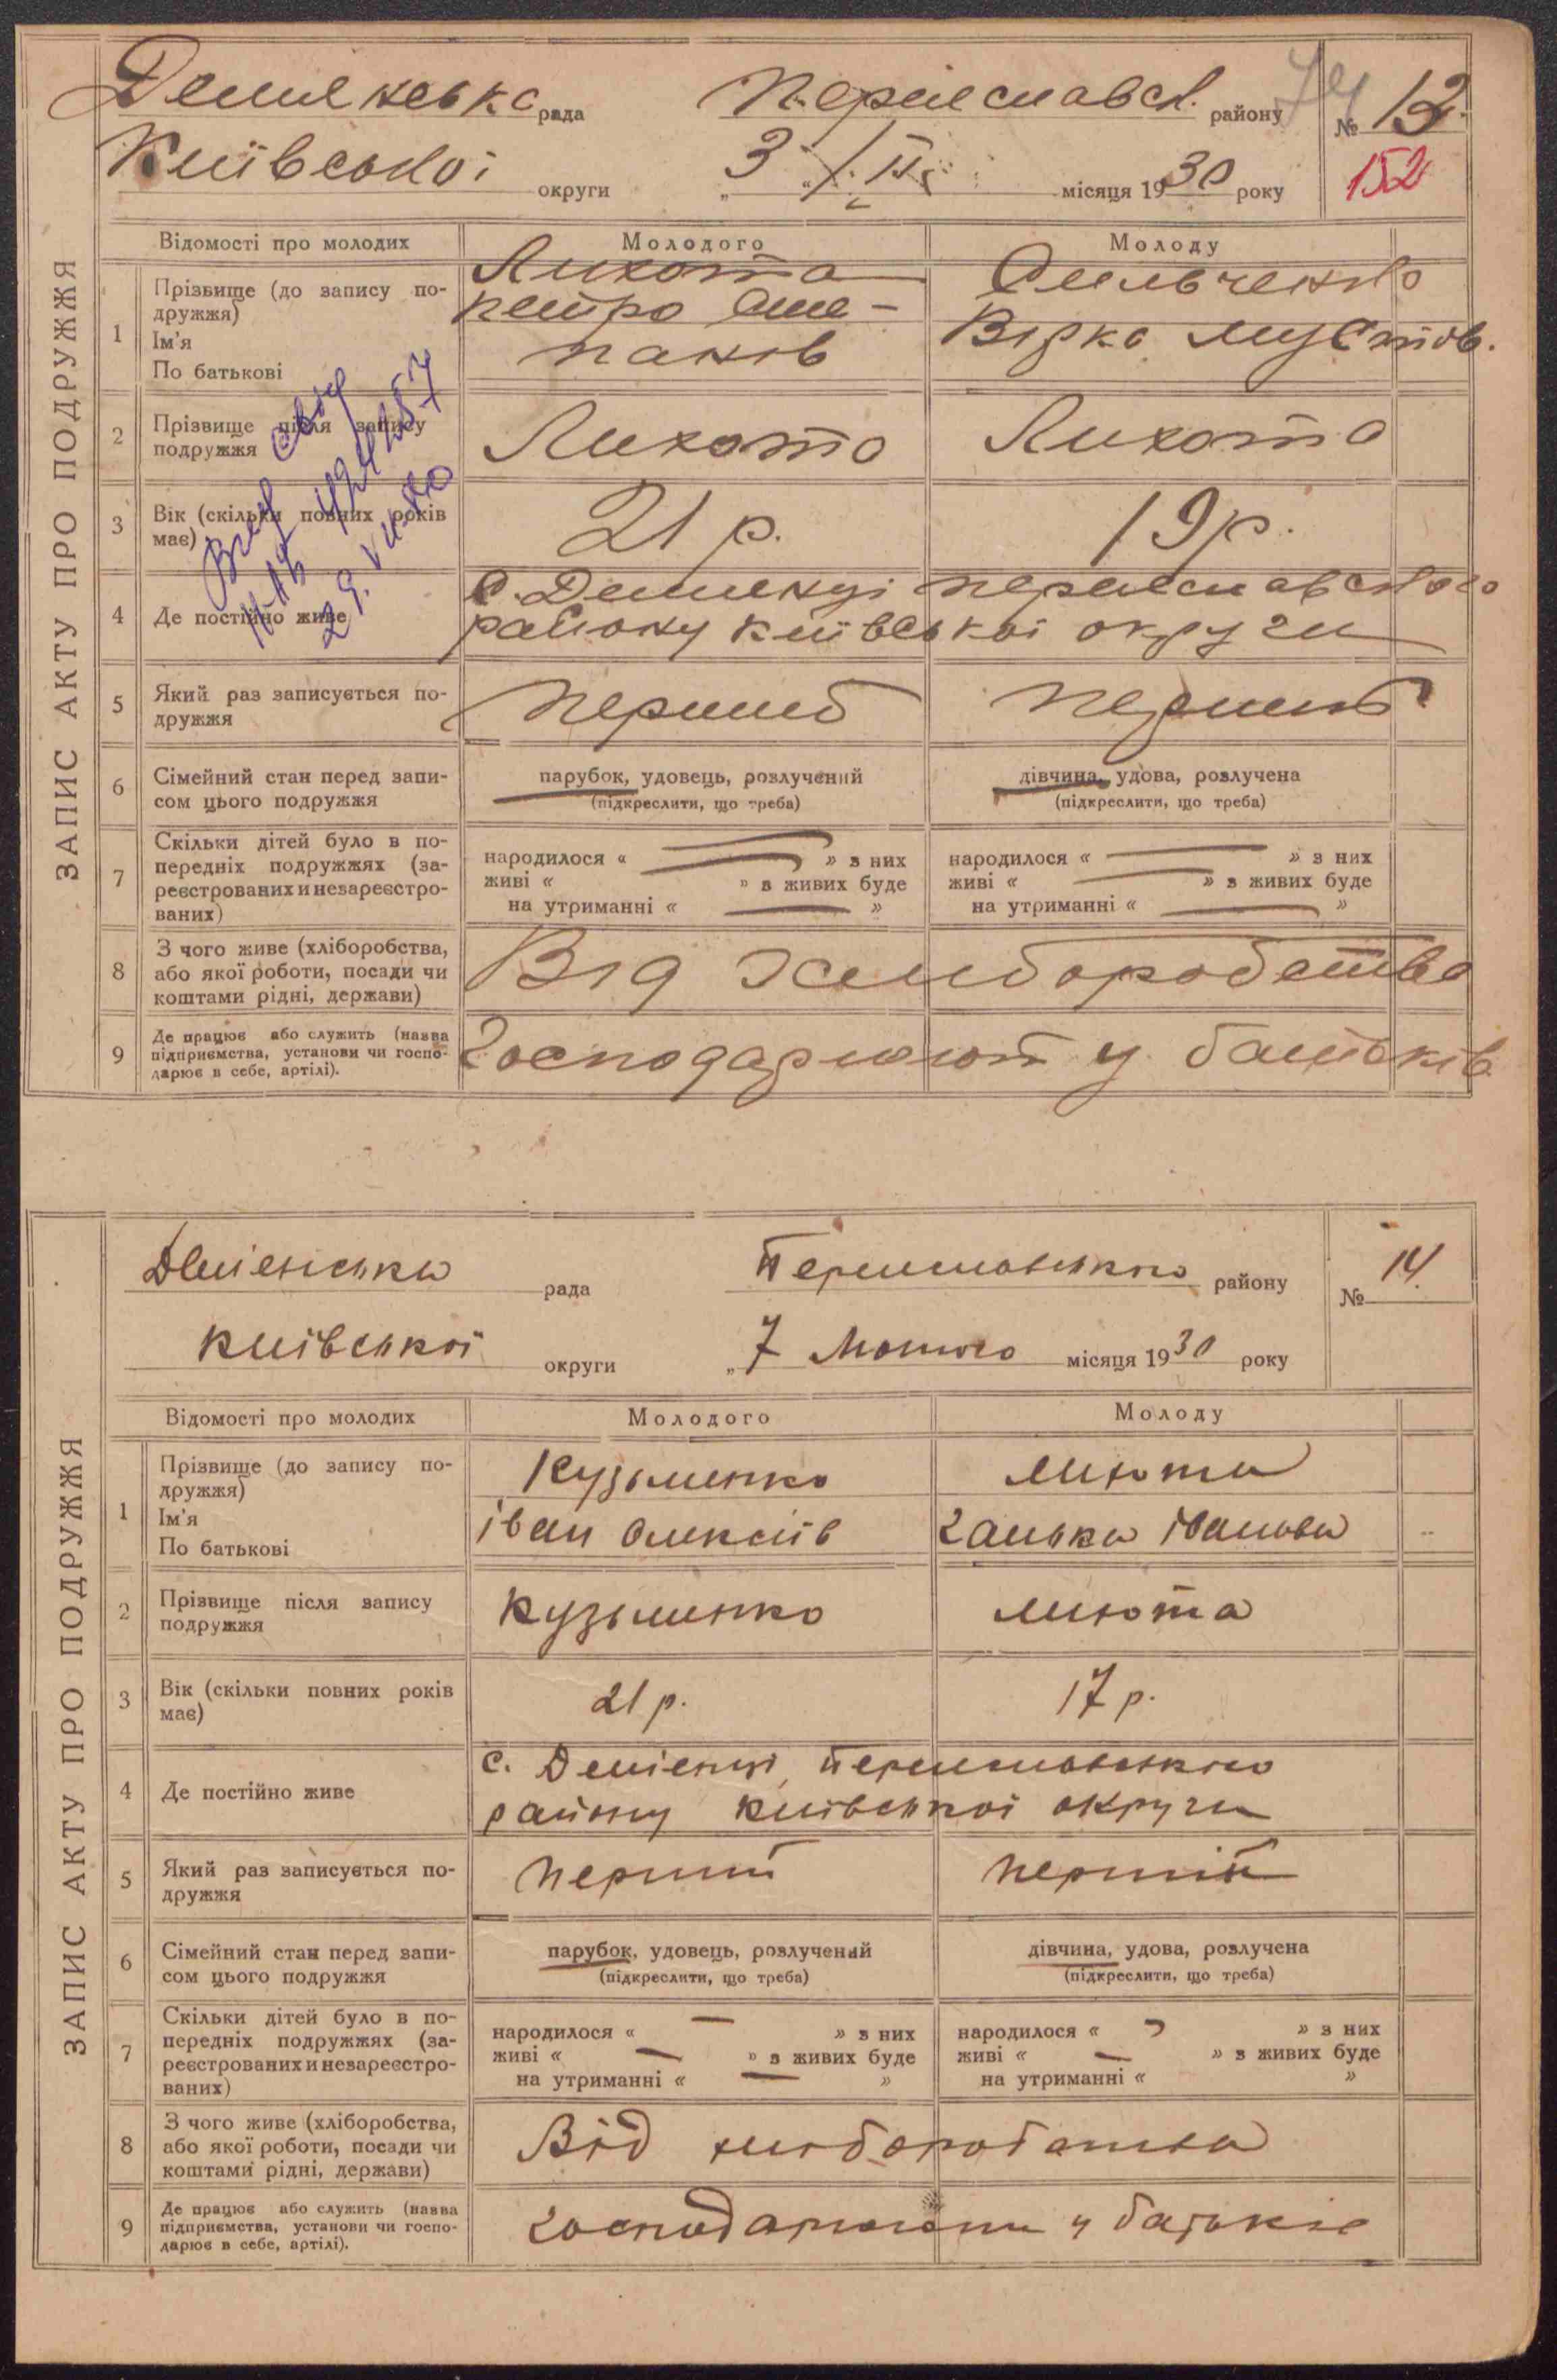 Демʼянська рада Переяславск. району № 13.
Київської округи „3 / II місяця 1930 року 152
ЗАПИС АКТУ ПРО ПОДРУЖЖЯ
Відомості про молодих Молодого Молоду
1 Прізвище (до запису по-
дружжя)
Ім'я
По батькові
Лихота
Петро Сте-
панів
Омельченко
Вірка
2 Прізвище після запису
подружжя
Лихота Лихота
3 Вік (скільки повних років
має)
21 р. 19 р.
4 Де постійно живе
с. Демьянці Переяславського
району Київської округи
5 Який раз записується по-
дружжя
перший перший
6 Сімейний стан перед запи-
сом цього подружжя
парубок, удовець, розлучений дівчина, удова, розлучена
(підкреслити, що треба) (підкреслити, що треба)
7 Скільки дітей було в по-
передніх подружжях (за-
реєстрованих и незареєстро-
ваних)
народилося « — » з них народилося « — » з них
живі « » з живих буде живі « — » з живих буде
на утриманні « — » на утриманні « — »
8 З чого живе (хліборобства,
або якої роботи, посади чи
коштами рідні, держави)
Від хліборобства
9 Де працює або служить (назва
підприємства, установи чи госпо-
дарює в себе, артілі).
Господарюют у батьків
Демʼенська рада Переяславського району № 14.
Київської округи „7 Лютого місяця 1930 року
ЗАПИС АКТУ ПРО ПОДРУЖЖЯ
Відомості про молодих Молодого Молоду
1 Прізвище (до запису по-
дружжя)
Ім'я
По батькові
Кузьменко Лихота
Іван Олексіїв Ганька Іванова
2 Прізвище після запису
подружжя
Кузьменко Лихота
3 Вік (скільки повних років
має)
21 р. 17 р.
4 Де постійно живе
с. Демʼенці, Переяславського
району Київської округи
5 Який раз записується по-
дружжя
перший перший
6 Сімейний стан перед запи-
сом цього подружжя
парубок, удовець, розлучений дівчина, удова, розлучена
(підкреслити, що треба) (підкреслити, що треба)
7 Скільки дітей було в по-
передніх подружжях (за-
реєстрованих и незареєстро-
ваних)
народилося « — » з них народилося « — » з них
живі « — » з живих буде живі « — » з живих буде
на утриманні « — » на утриманні « »
8 З чого живе (хліборобства,
або якої роботи, посади чи
коштами рідні, держави)
Від хліборобства
9 Де працює або служить (назва
підприємства, установи чи госпо-
дарює в себе, артілі).
господарюють у батьків